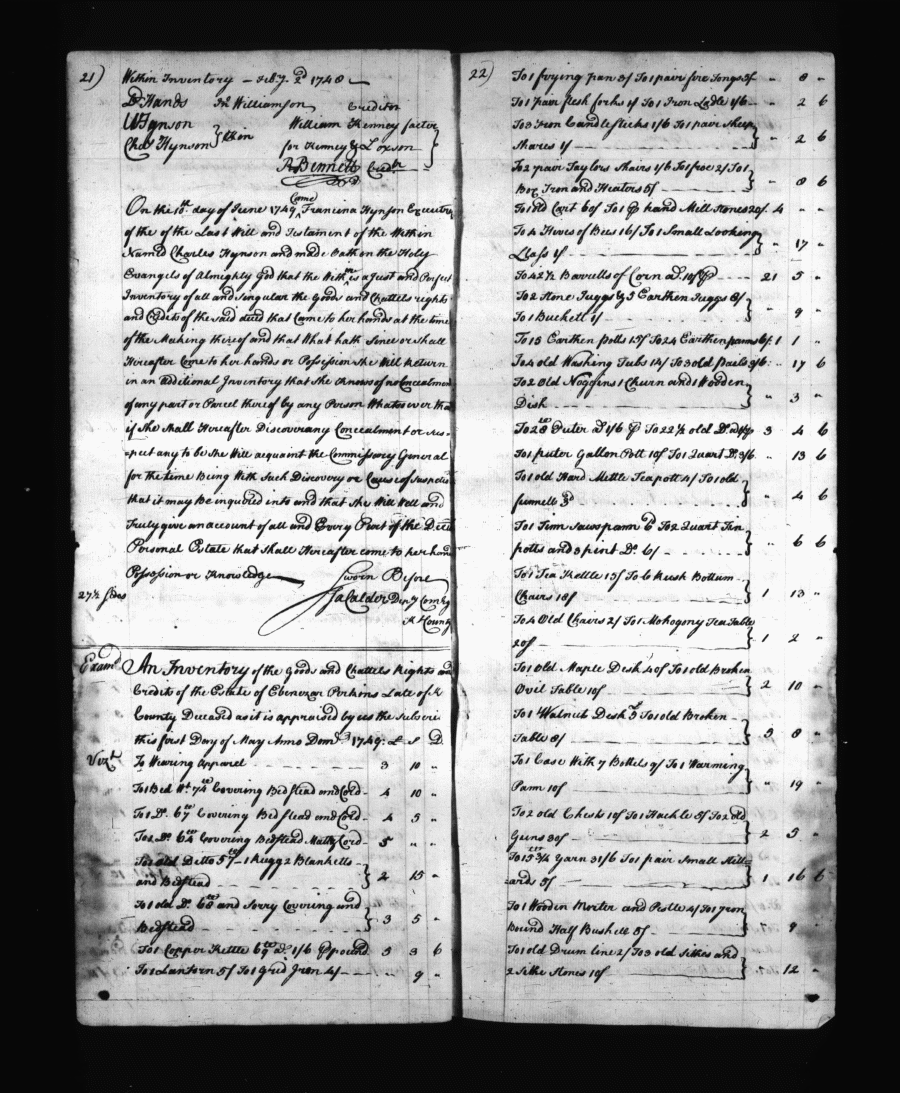 21)
Within Inventory – Feb.y 2d 1748
D Hands Williamson Creditor
W Hynson
Chas Hynson } Kin
William Kenney factor
for Kenney & Loxson
R Bennett Credr
On the 10th day of June 1749 Came Francina Hynson Executrix
of the of the Last Will and Testament of the Within
Named Charles Hynson and made Oath on the Holy
Evangels of Almighty God that the Within is a Just and Perfect
Inventory of all and Singular the Goods and Chattels rights
and Credits of the said deced that Came to her hands at the time
of the Making thereof and that What hath Since or shall
Hereafter Come to her hands or Possession She Will Return
in an additional Inventory that She Knows of no Concealment
of any part or Parcel thereof by any Person Whatsoever tha
if She Shall Hereafter Discover any Concealment or Sus-
-pect any to be She Will acquaint the Commissary General
for the time Being With Such Discovery or Cause of Suspicion
that it may Be inquired into and that She Will Well and
Truly give an account of all and Every Part of the Deced
Personal Estate that Shall Hereafter come to her hand
Possession or Knowledge
Sworn Before
27½ Sides
Ja Calder Depy Comry
K County
Examd
An Inventory of the Goods and Chattels Rights and
Credits of the Estate of Ebenezar Perkons Late of K
County Deceased as it is appraised by us the Subscri
this first Day of May Anno Dom 1749: L S D
Vizt
To Wearing Apparel 3 10 "
To 1 Bed Wt 74 Covering Bedstead and Cord 4 10 "
To 1 Do 67 Covering Bedstead and Cord 4 5 "
To 1 Do 64 Covering Bedstead Matt Cord 5 " "
To 1 old Ditto 57 1 Rugg 2 Blanketts
and Bedstead } 2 15 "
To 1 old Do 60 and Sorry Covering and
Bedstead } 3 5 "
To 1 Copper Kettle 69 at 1/6 p pound 5 3 6
To 1 Lantorn 5/ To 1 Grid Iron 4/ " 9 "
22)
To 1 frying pan 3/ To 1 pair fire Tongs 5/ " 8 "
To 1 pair flesh forks 1/ To 1 Iron Ladle 1/6 " 2 6
To 3 Iron Candlesticks 1/6 To 1 pair Sheep
Shares 1/ } " 2 6
To 2 pair Taylors Shairs 1/6 To 1 froe 2/ To 1
Box Iron and Heaters 5/ } " 8 6
To 1 old Cart 60/ To 1 p hand Mill Stones 20/ 4 " "
To 4 Hives of Bees 16/ To 1 Small Looking
Glass 1/ } " 17 "
To 42½ Barrells of Corn at 10/ p 21 5 "
To 2 Stone Juggs & 3 Earthen Juggs 8/
To 1 Buckett 1/ } " 9 "
To 15 Earthen potts 15/ To 24 Earthen panns 6/ 1 1 "
To 4 old Washing Tubs 14/ To 3 old pails 3/6 " 17 6
To 2 Old Noggens 1 Churn and 1 Wooden
Dish } " 3 "
To 28 Puter at 1/6 p To 22½ old Do 3 4 6
To 1 puter Gallon Pott 10/ To 1 Quart Do 3/6 " 13 6
To 1 old Hard Mettle Teapott 4/ To 1 old
funnell } " 4 6
To 1 Tinn Sawspann 6d To 2 Quart Tin
potts and 3 pint Do 6/ } " 6 6
To 1 Tea Kettle 15/ To 6 Rush Bottum
Chairs 18/ } 1 13 "
To 4 Old Chairs 2/ To 1 Mohogony Tea Table
20/ } 1 2 "
To 1 Old Maple Desk 40/ To 1 old Broken
Ovil Table 10/ } 2 10 "
To 1 Walnut Desk To 1 old Broken
Table 8/ } 5 8 "
To 1 Case With 7 Bottels 9/ To 1 Warming
Pann 10/ } " 19 "
To 2 old Chests 10/ To 1 Hackle 5/ To 2 old
Guns 30/ } 2 5 "
To 15¾ Yarn 31/6 To 1 pair Small Still
ards 5/ } 1 16 6
To 1 Wooden Morter and Pistle 4/ To 1 Iron
Bound Half Bushell 5/ } " 9 "
To 1 old Drum line 2/ To 3 old Sithes and
2 Sithe Stones 10/ } " 12 "